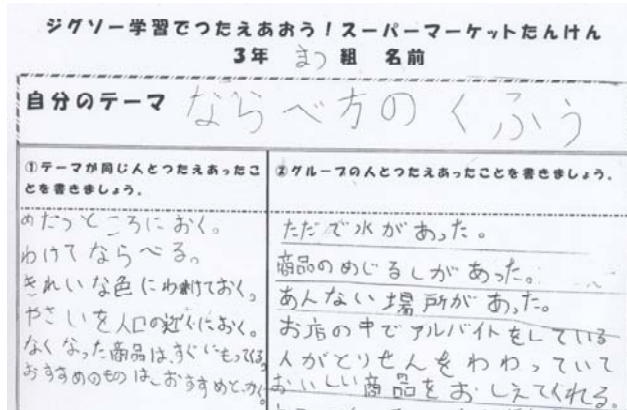 ジグソー学習でつたえあおう！スーパーマーケットたんけん
3年 まつ 組 名前
自分のテーマ ならべ方のくふう
①テーマが同じ人とつたえあったこ
とを書きましょう。
めだつところにおく。
わけてならべる。
きれいな色にわけておく。
やさいを入口の近くにおく。
なくなった商品は、すぐにもってくる。
おすすめのものは、おすすめとかく。
②グループの人とつたえあったことを書きましょう。
ただで水があった。
商品のめじるしがあった。
あんない場所があった。
お店の中でアルバイトをしている
人がとりせんをわわっていて
おいしい商品をおしえてくれる。